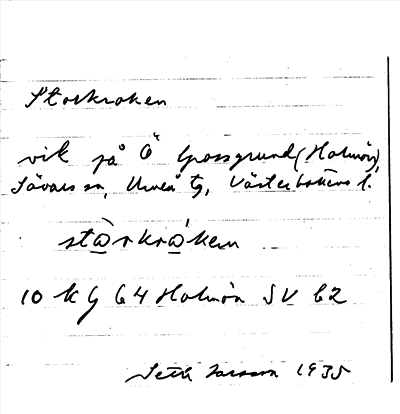 Storkroken
vik på Ö Grossgrund (Holmön),
Sävars sn, Umeå tg, Västerbottens l.
stårkråken
10 kg 64 Holmön SV 62
Seth Larsson 1935